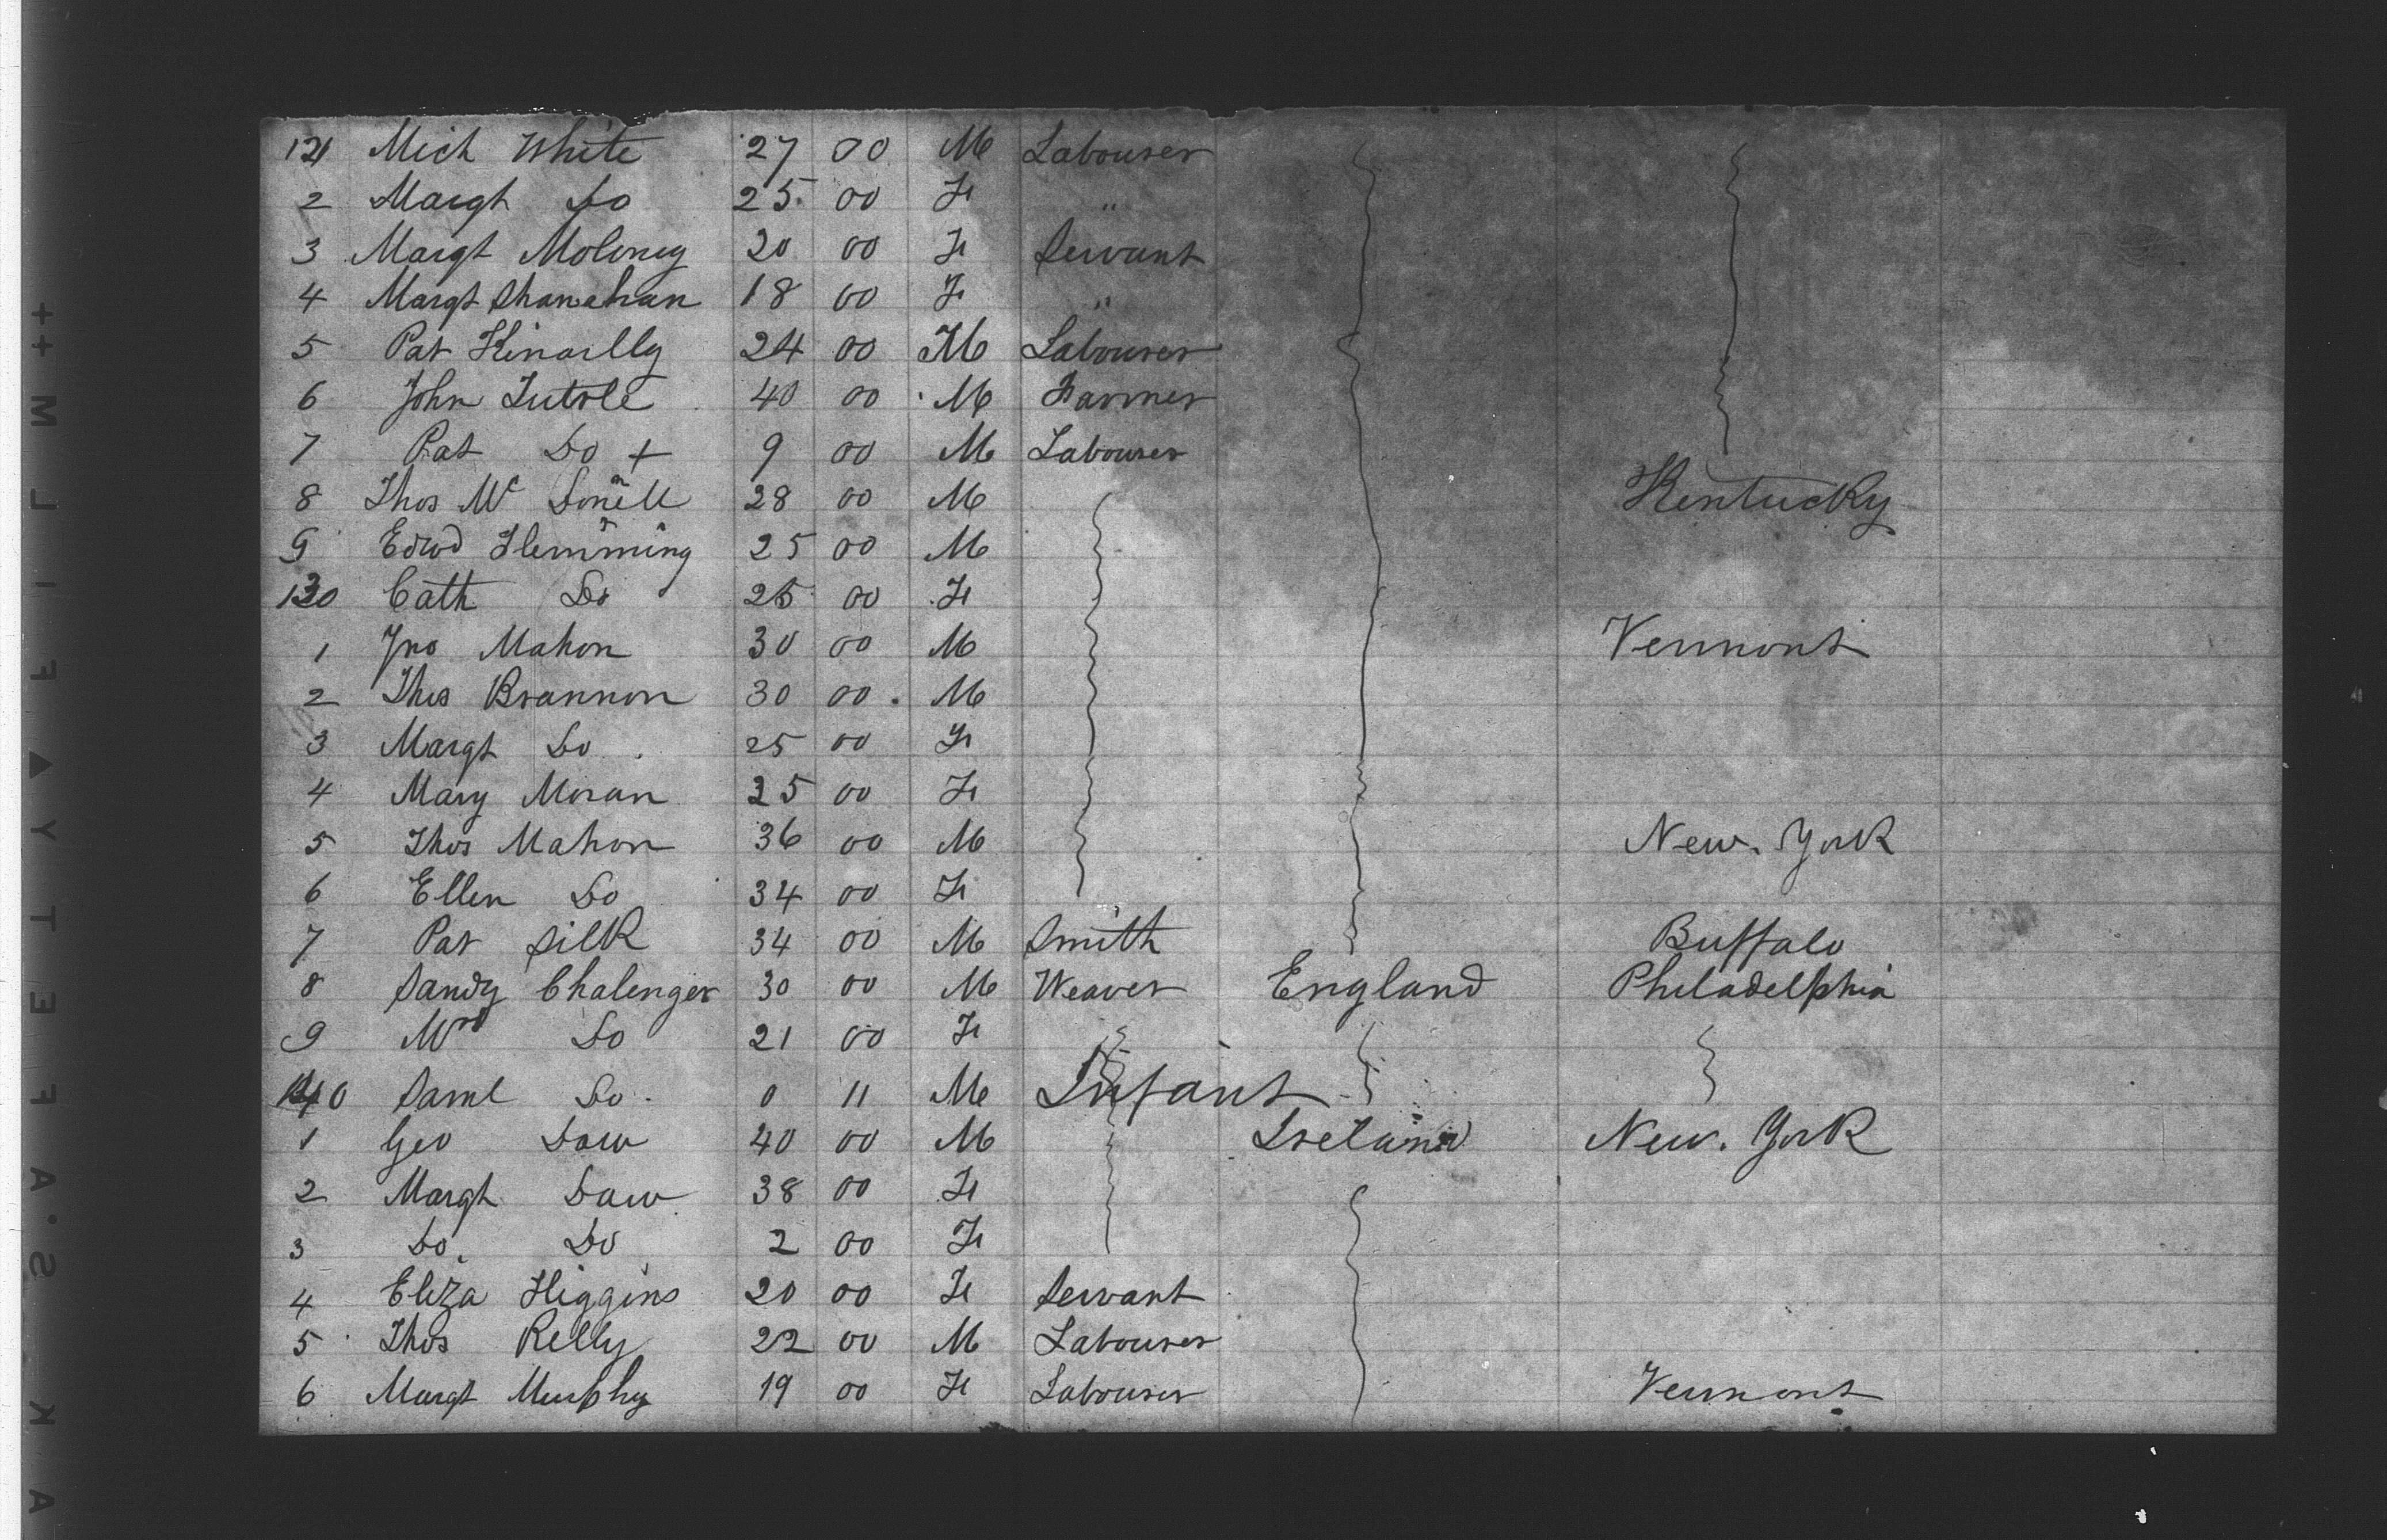 121 Mich White 27 00 M Labourer
2 Margt Do 25 00 F "
3 Margt Moloney 20 00 F Servant
4 Margt Shanahan 18 00 F "
5 Pat 24 00 M Labourer
6 John 40 00 M Farmer
7 Pat Do + 9 00 M Labourer
8 Thos Mc Donell 28 00 M Kentucky
9 Edwd Flemming 25 00 M
130 Cath Do 25 00 F
1 Jno Mahon 30 00 M Vermont
2 Thos Brannon 30 00 M
3 Margt Do 25 00 F
4 Mary Moran 25 00 F
5 Thos Mahon 36 00 M New York
6 Ellen Do 34 00 F
7 Pat Silk 34 00 M Smith Buffalo
8 Sandy Chalenger 30 00 M Weaver England Philadelphia
9 Mrs Do 21 00 F
140 Saml Do 0 11 M Infant
1 Geo Daw 40 00 M Ireland New York
2 Margt Daw 38 00 F
3 Do. Do 2 00 F
4 Eliza Higgins 20 00 F Servant
5 Thos Relly 22 00 M Labourer
6 Margt Murphy 19 00 F Labourer Vermont